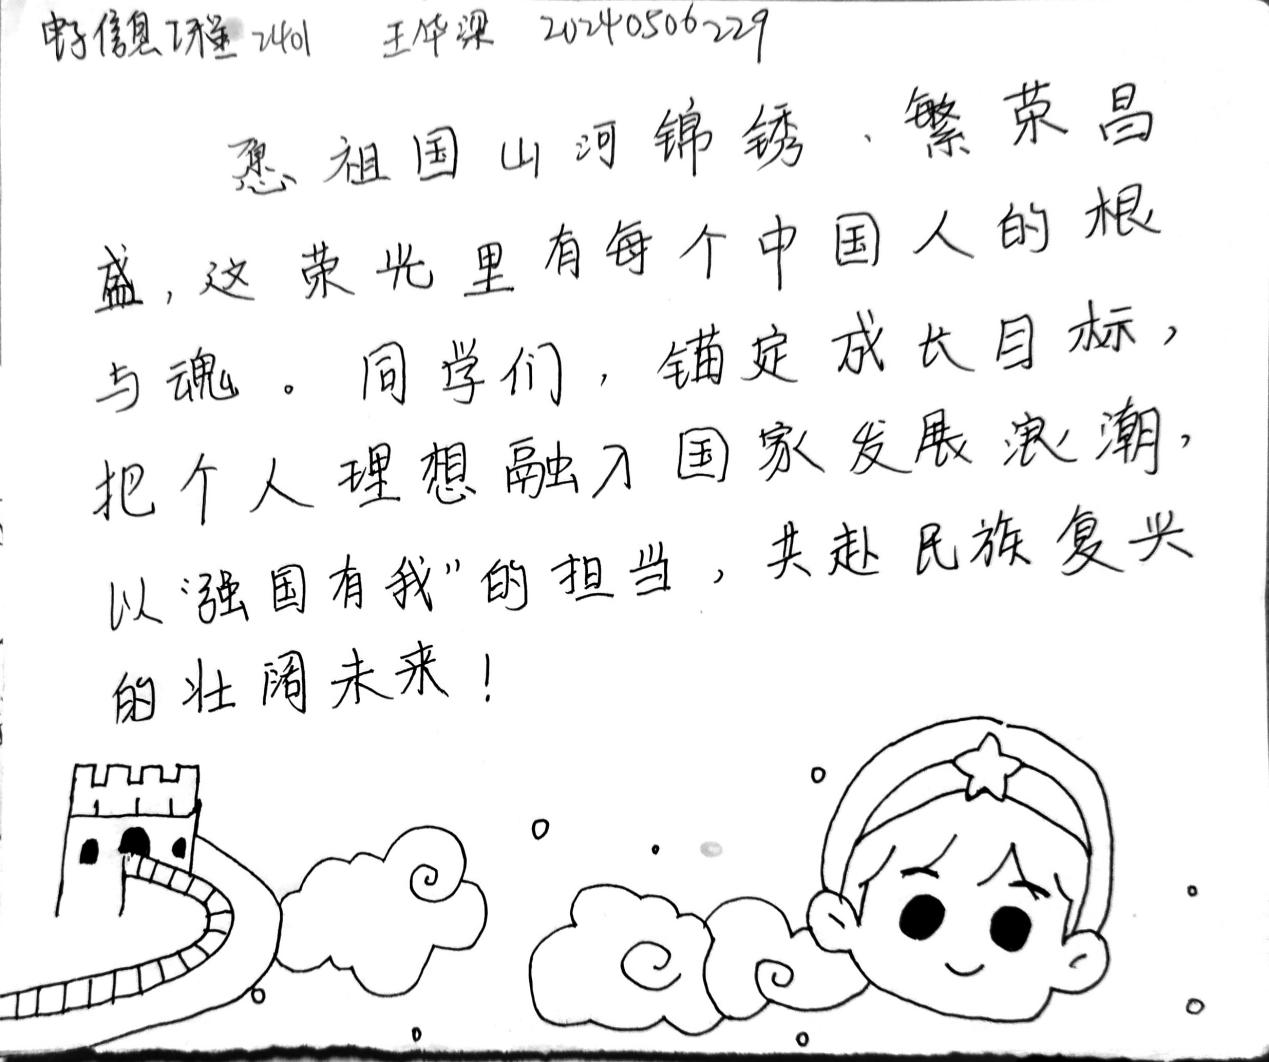 电子信息工程2401 王华梁 20240506229
愿祖国山河锦锈、繁荣昌
盛，这荣光里有每个中国人的根
与魂。同学们，锚定成长目标，
把个人理想融入国家发展浪潮，
以“强国有我”的担当，共赴民族复兴
的壮阔未来！